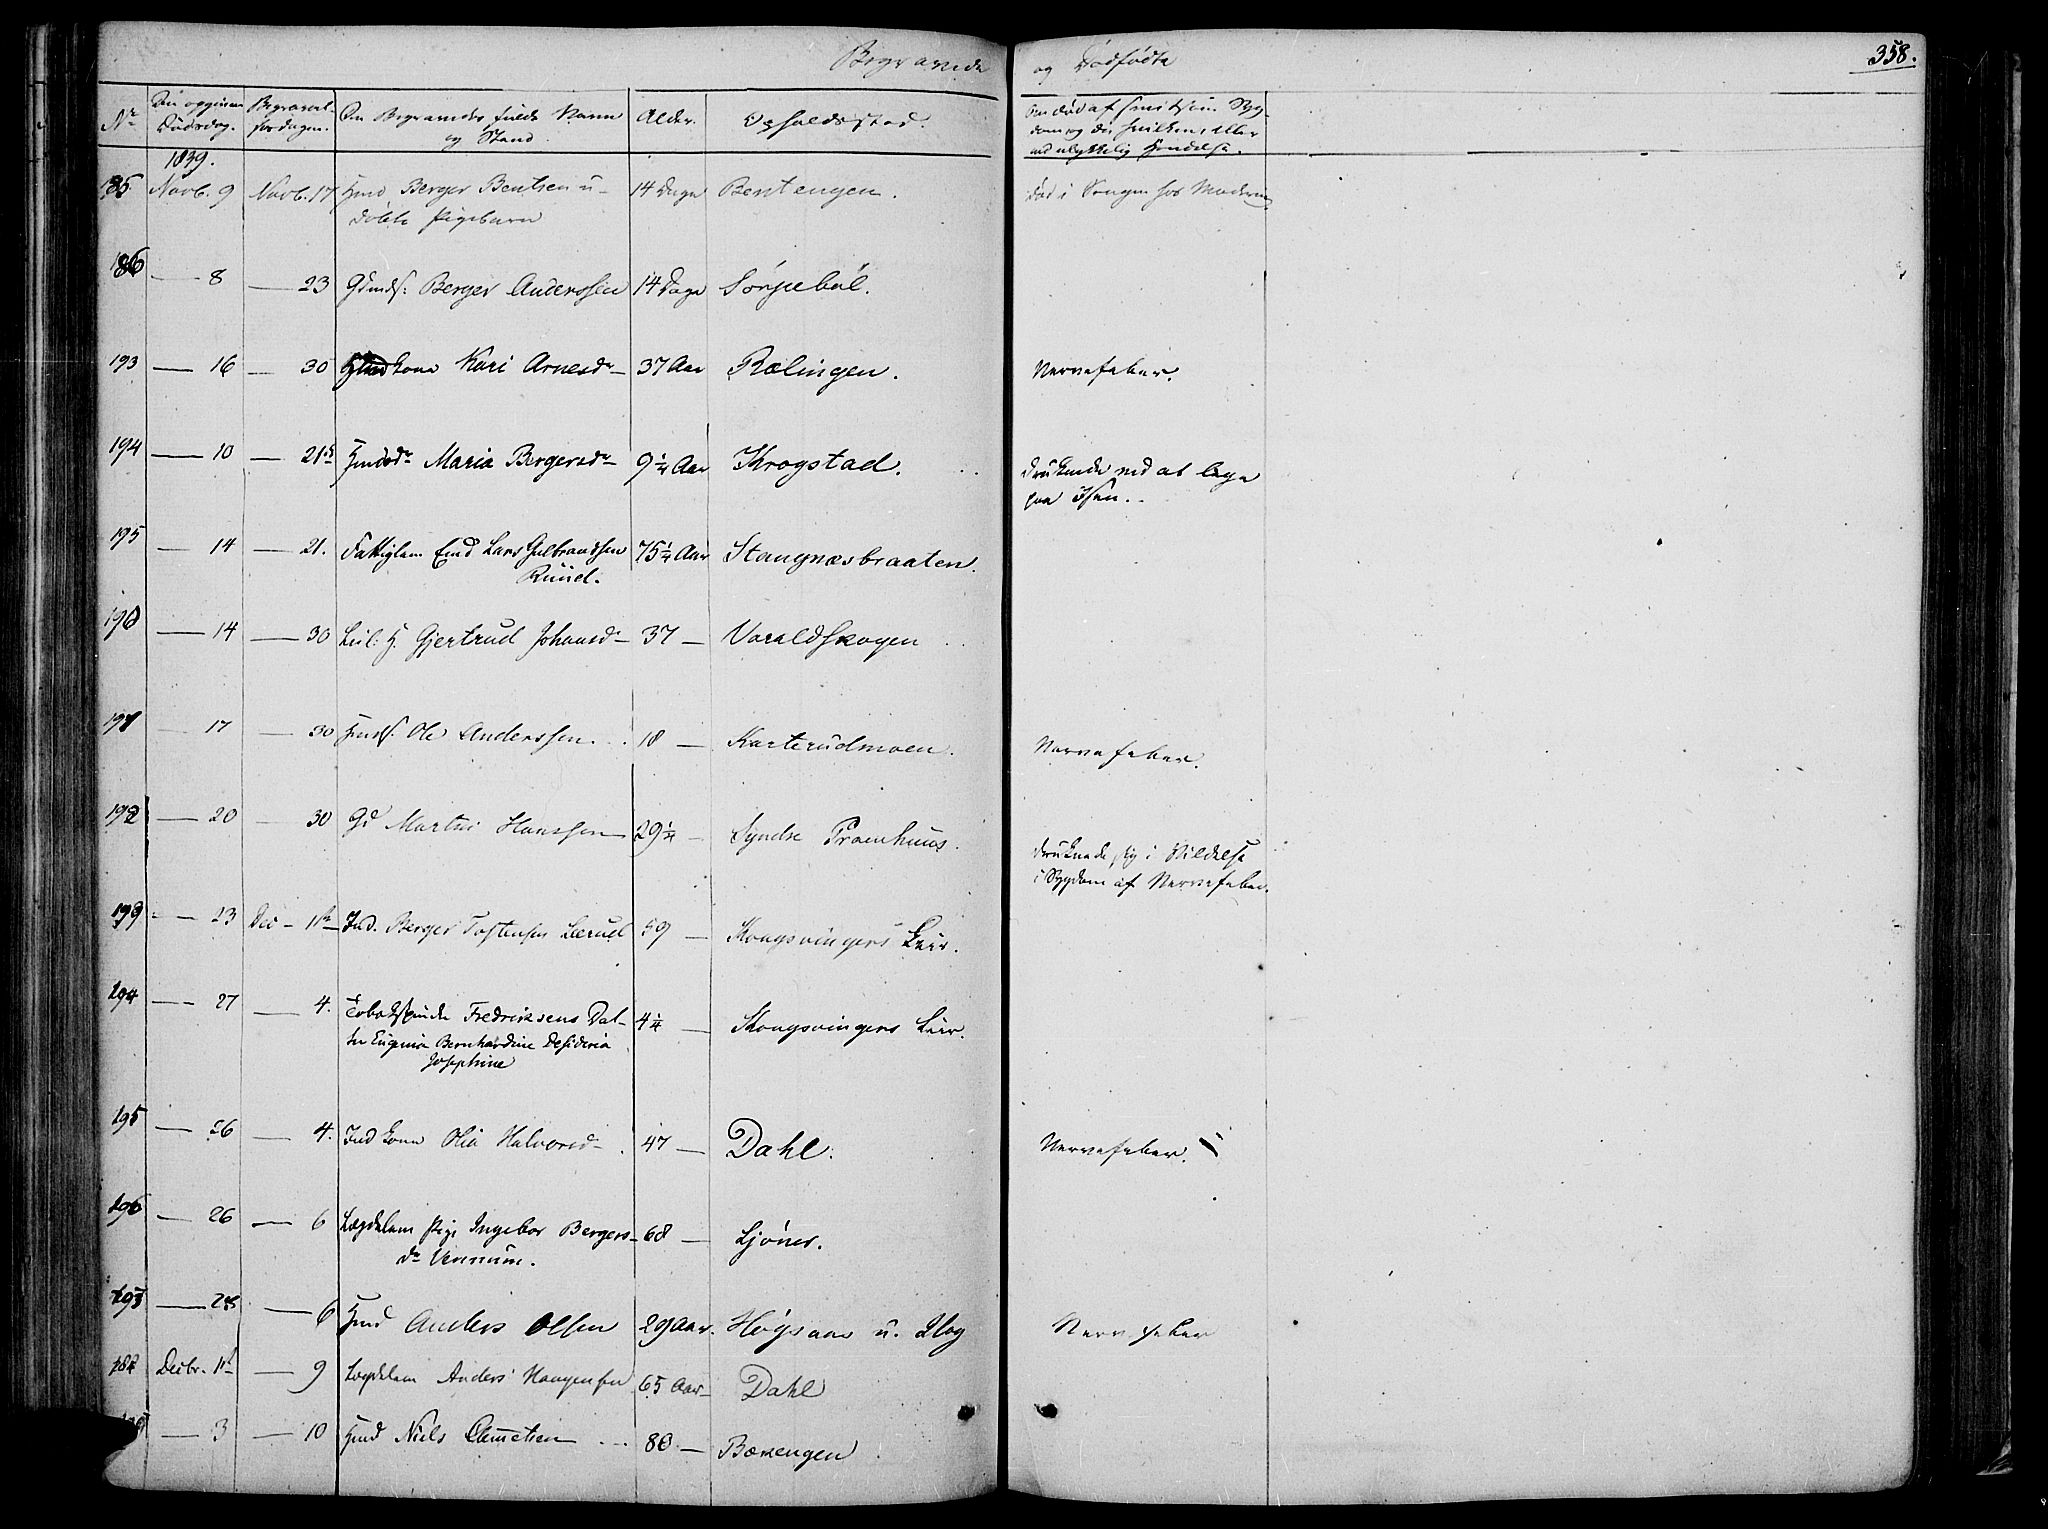 Begravede og Dødfødte
358.
Nr. Den opgivne Dødsdag. Begravelsesdagen. Den Begravedes fulde Navn og Stand. Alder. Opholdsstad. Om død af smitsom Sygdom og da hvilken, eller ved ulykkelig Hændelse.
1839.
185 Novb. 9 Novb. 17 Hmd Berger Bentsen u-
døbte Pigebarn 14 Dage Bentengen. død i Sengen hos Moderen.
186 — 8 — 23 Gdmds. Berger Anderssen 14 Dage Sörjebøl.
193 — 16 — 30 kone Kari Arnesdr 37 Aar Rælingen. Nervefeber.
194 — 10 — 21 Hmdsdr Maria Bergersdr 9 1/4 Aar Krogstad. druknede ved at lege
paa Isen.
195 — 14 — 21. Fattiglem Lars Gulbrandsen
Ruud. 75 1/4 Aar Stangnæsbraaten.
190 — 14 — 30 Leil: H. Gjertrud Johansdr 37 — Varaldskogen
191 — 17 — 30 Hmds. Ole Anderssen 18 — Karterudmoen. Nervefeber.
192 — 20 — 30 Gd Martin Hanssen 29 1/4 — Syndre Pramhuus. druknede sig i Vildelse
i Sygdom af Nervefeber.
193 — 23 Dec — 1 Ind. Berger Tostensen Leerud 59 — Kongsvingers Leir.
194 — 27 — 4. Fredriksens Dat-
ter Eugenia Bernhardine Desideria
Josephine 4 1/4 — Kongsvingers Leir.
195 — 26 — 4. Ind kone Olia Halvorsd 47 — Dahl. Nervefeber.
196 — 26 — 6 Lægdslem Pige Ingebor Bergers-
dr Vennum. 68 — Ljöner.
193 — 28 — 6 Hmd Anders Olsen 29 Aar. Høgsaas u. Nervefeber
Decbr. 1 — 9 Lægdslem Anders Haagensen 65 Aar Dahl
— 3 — 10 Hmd Niels Clemetsen 80 — Bævengen